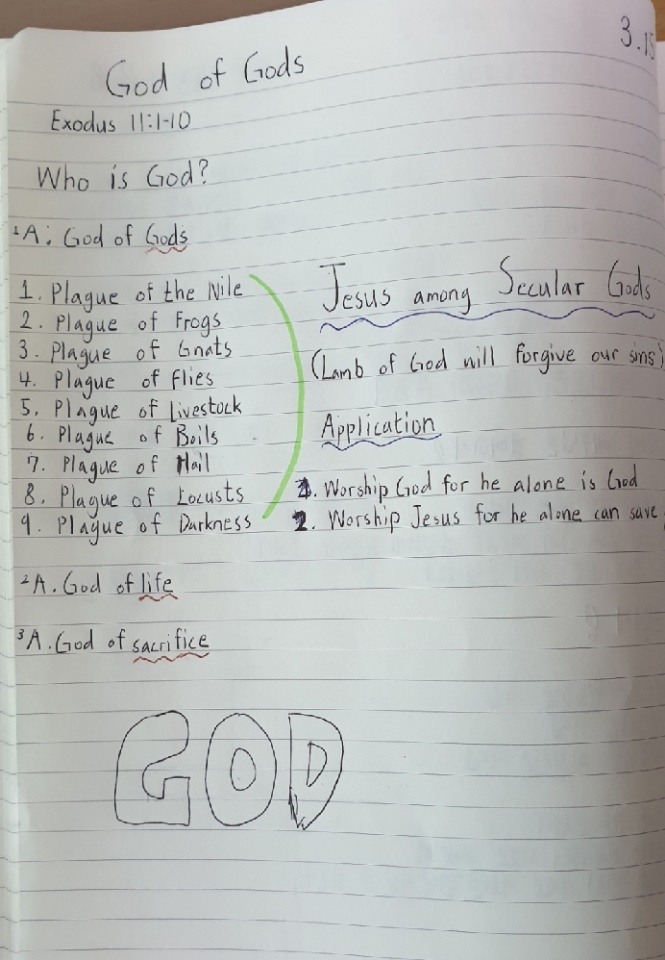 3.15
God of Gods
Exodus 11:1-10
Who is God?
¹A: God of Gods
1. Plague of the Nile
2. Plague of Frogs
3. Plague of Gnats
4. Plague of flies
5. Plague of Livestock
6. Plague of Boils
7. Plague of Hail
8. Plague of Locusts
9. Plague of Darkness
Jesus among Secular Gods
(Lamb of God will forgive our sins)
Application
1. Worship God for he alone is God
2. Worship Jesus for he alone can save
²A. God of life
³A. God of sacrifice
GOD